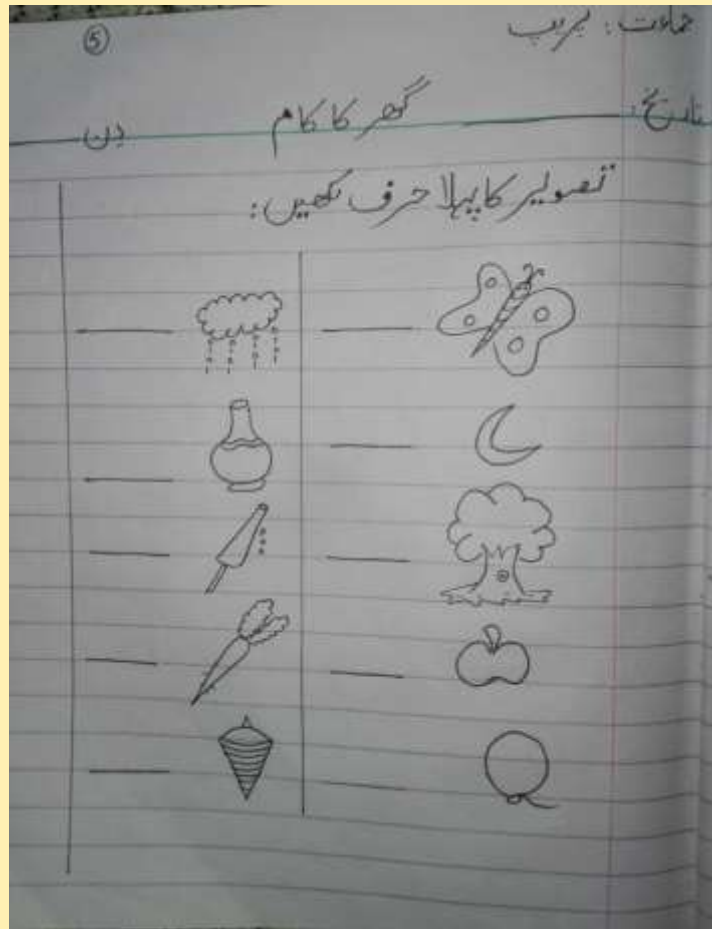 جماعت: پریپ
⑤
تاریخ: ________ گھر کا کام ________ دن
تصویر کا پہلا حرف لکھیں: